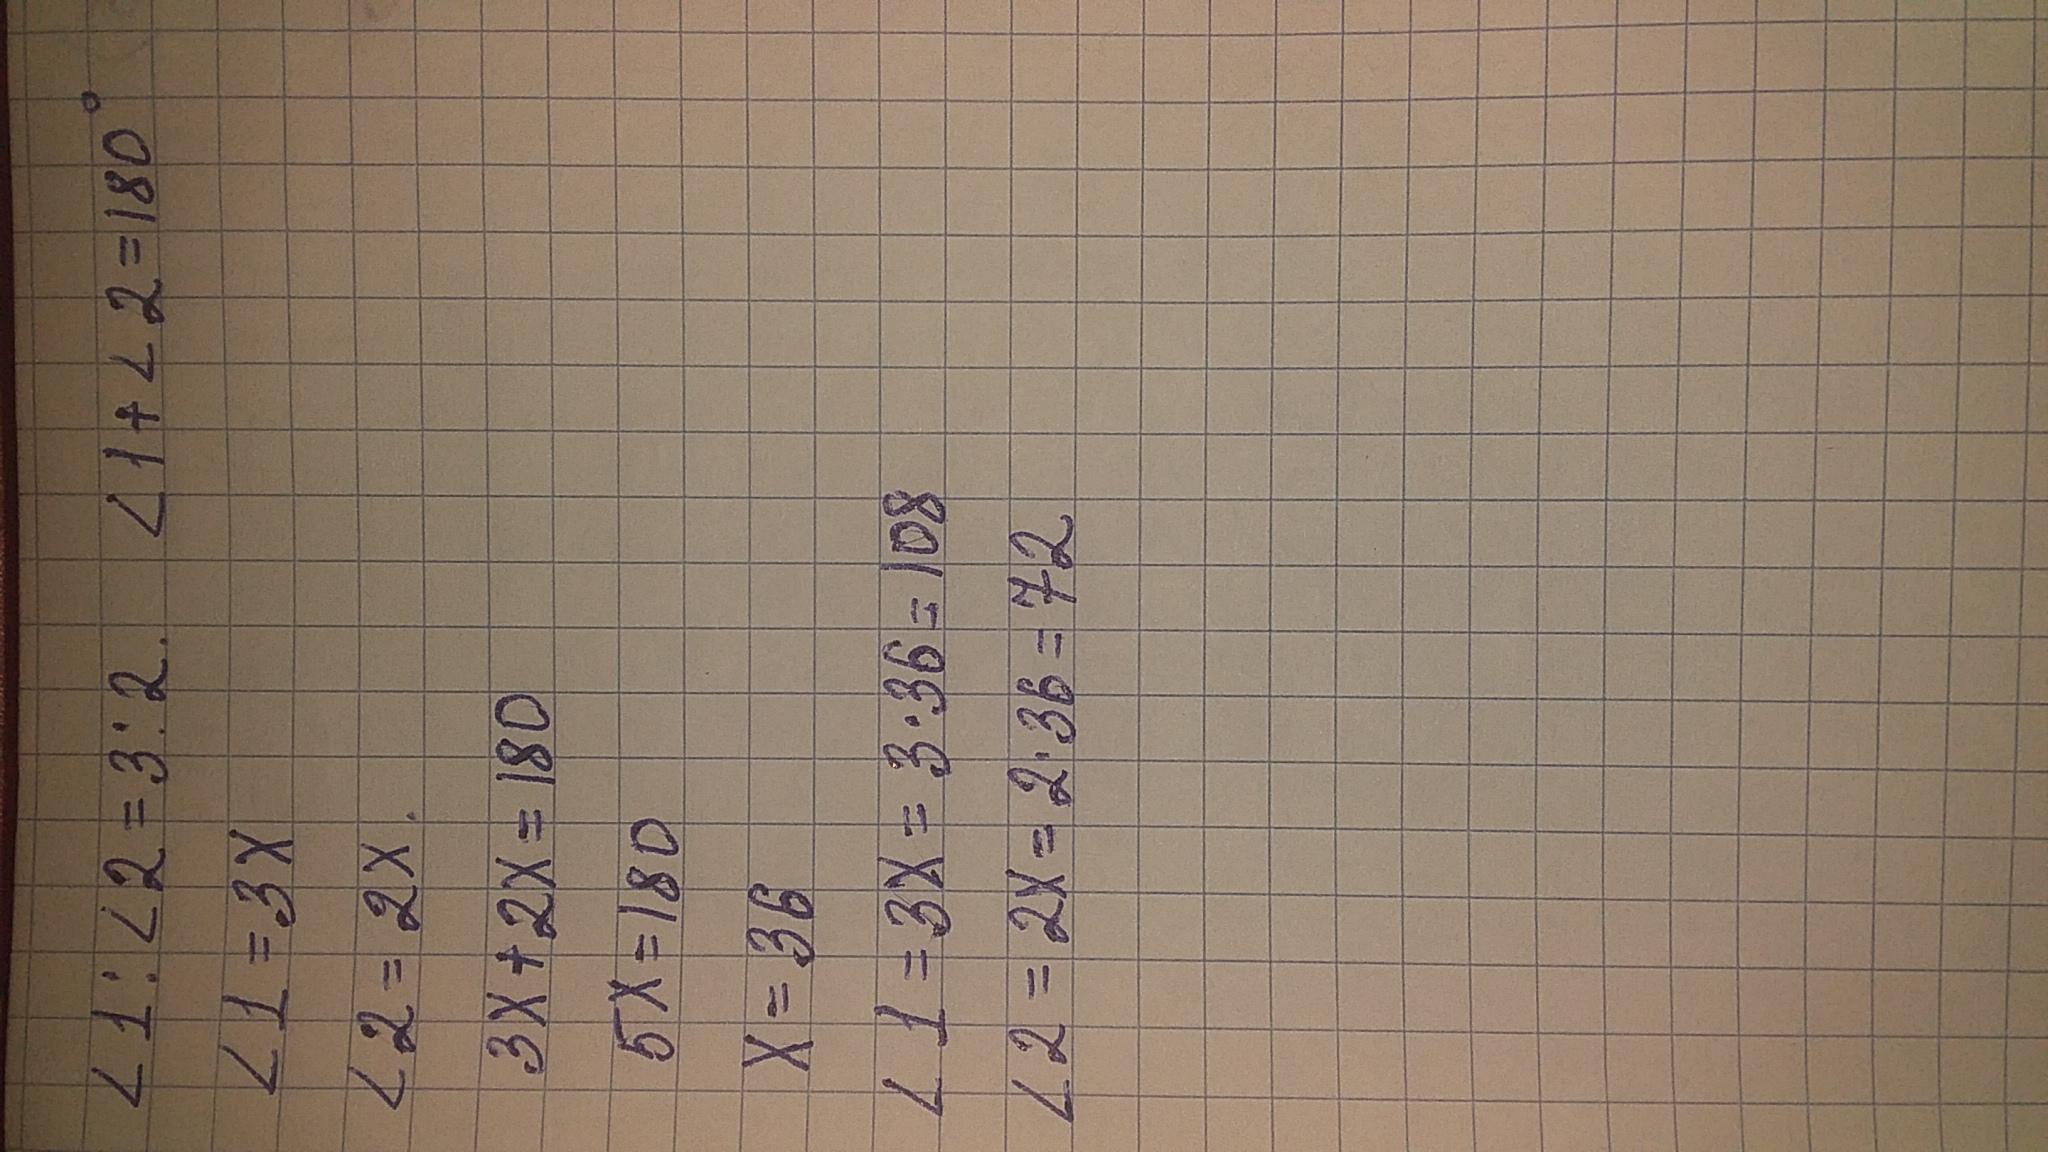 ∠1:∠2=3:2. ∠1+∠2=180°
∠1=3x
∠2=2x.
3x+2x=180
5x=180
x=36
∠1=3x=3·36=108
∠2=2x=2·36=72